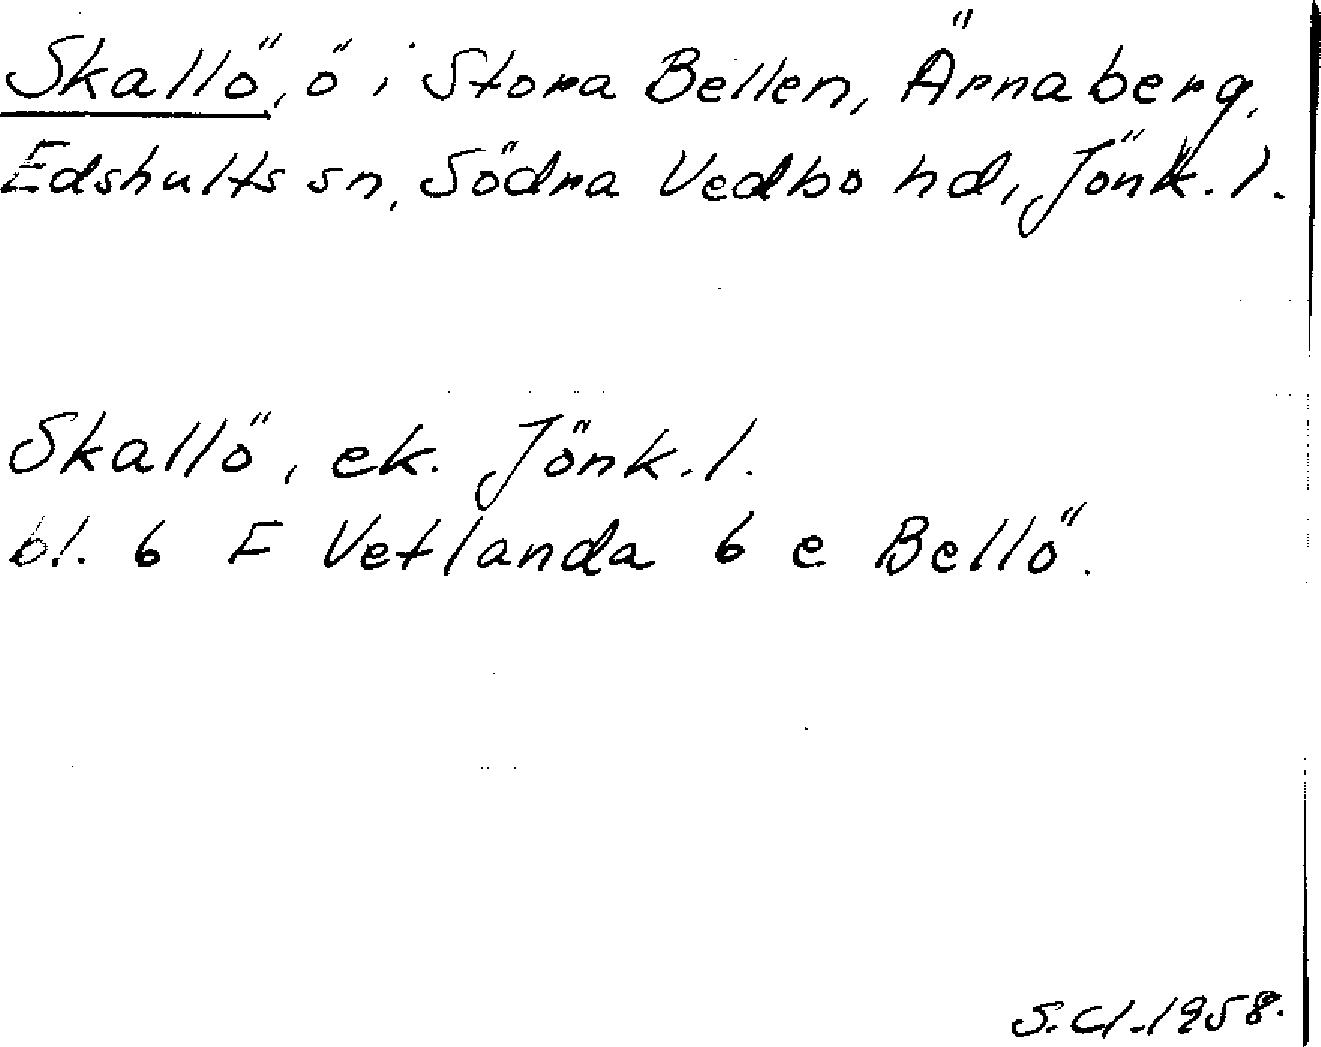 Skallö, ö i Stora Bellen, Ärnaberg,
Edshults sn, Södra Vedbo hd, Jönk. l.
Skallö, ek. Jönk. l.
bl. 6 F Vetlanda 6 e Bellö.
S. Cl. 1958.